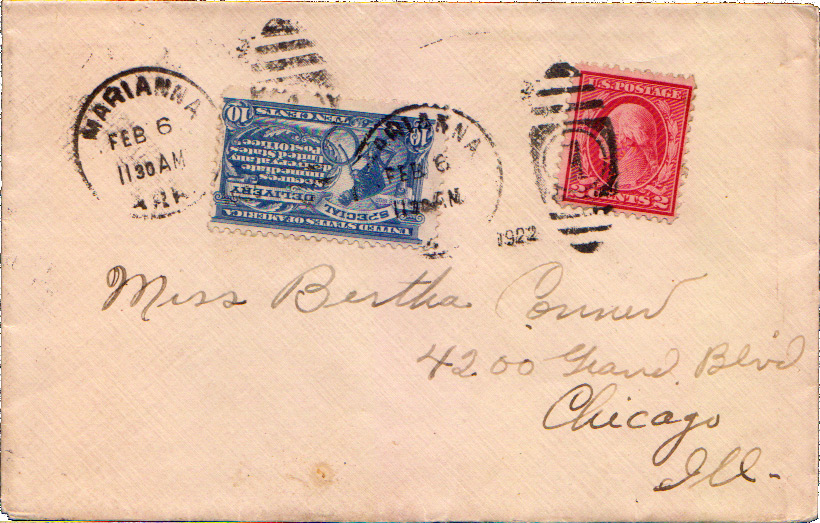 MARIANNA
FEB 6
11 30 AM
ARK.
UNITED STATES OF AMERICA
SPECIAL DELIVERY
Secures
immediate
delivery at any
United States
Post office
10 TEN CENTS 10
MARIANNA
FEB 6
11 30 AM
1922
U.S. POSTAGE
2 CENTS 2
Miss Bertha Conner
4200 Grand Blvd
Chicago
Ill.